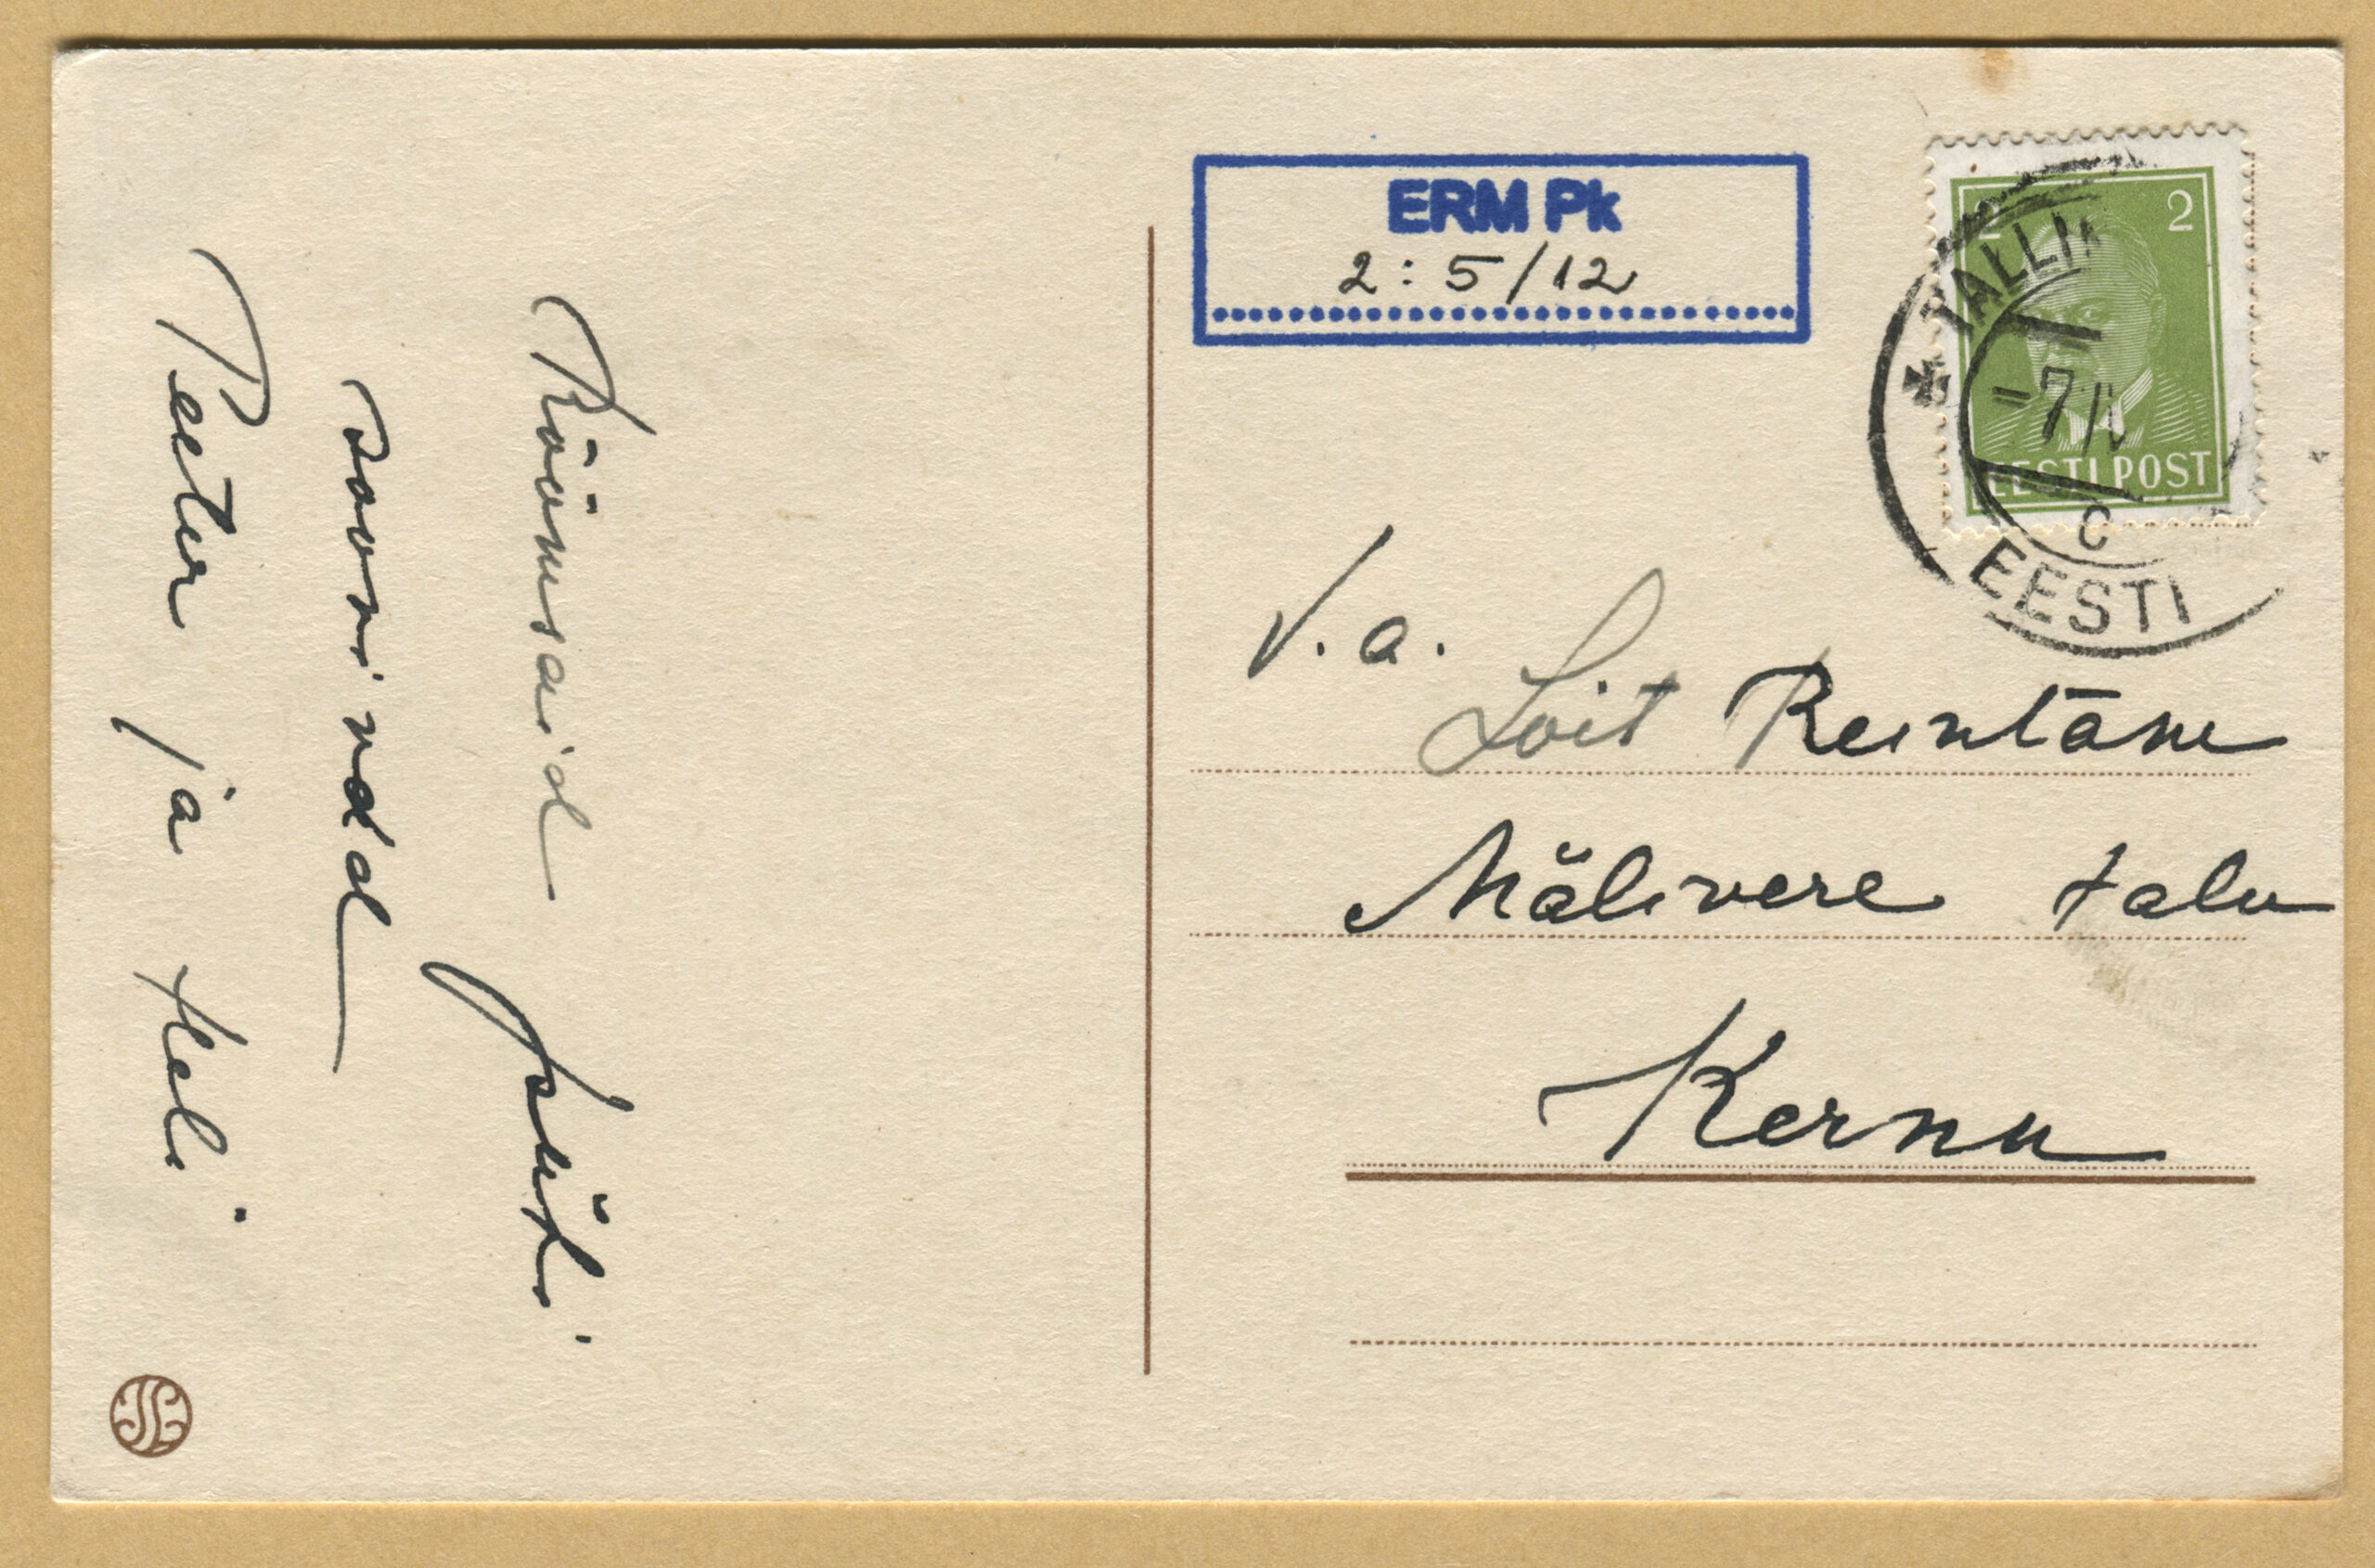 Rõõmsaid jõulu
soovivad
Peeter ja Heli.
ERM Pk
2:5/12
2 2
EESTI POST
TALLIN
-7
c
EESTI
V.a.
Loit Reintam
Mälivere talu
Kernu